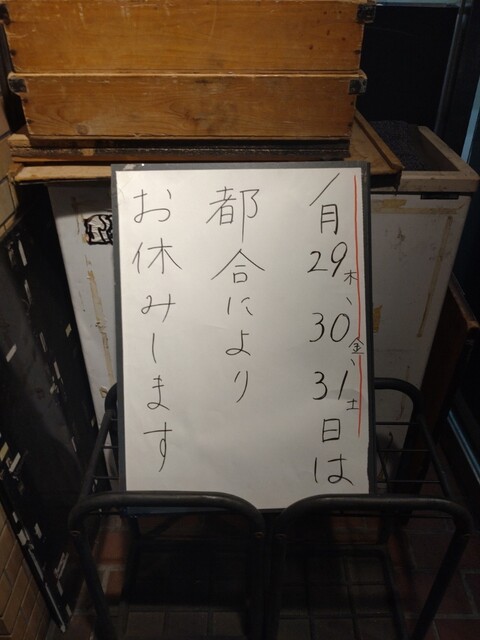 1月29木、30金、31土日は
都合により
お休みします